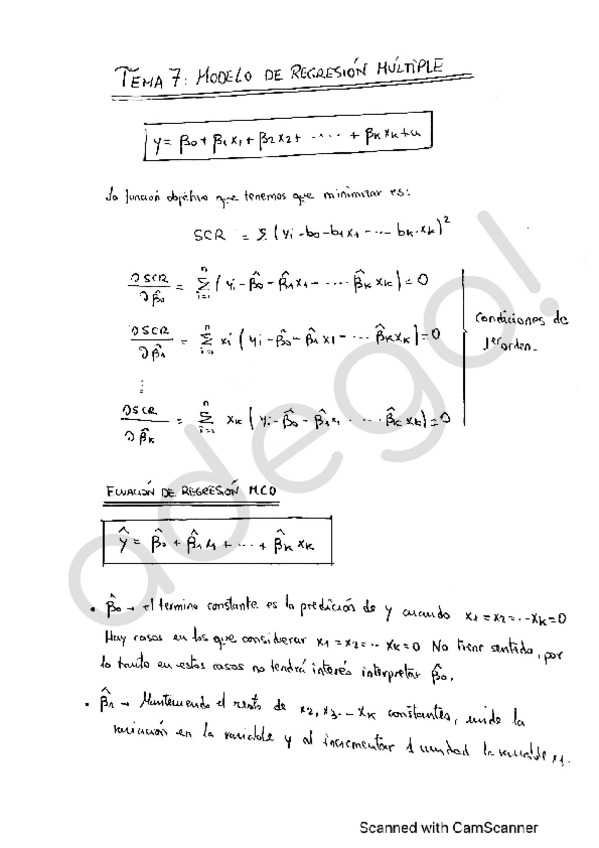 TEMA 7: MODELO DE REGRESIÓN MÚLTIPLE
y = β0 + β1 x1 + β2 x2 + ..... + βk xk + u
La función objetivo que tenemos que minimizar es:
SCR = Σ (yi - b0 - b1 x1 - ... bk · xk)²
∂SCR/∂β̂0 = Σ(i=1, n) (yi - β̂0 - β̂1 x1 - .... β̂k xk) = 0
∂SCR/∂β̂1 = Σ(i=1, n) xi (yi - β̂0 - β̂1 x1 - ... β̂k xk) = 0
Condiciones de
1er orden.
⋮
∂SCR/∂β̂k = Σ(i=1, n) xk (yi - β̂0 - β̂1 x1 .... β̂k xk) = 0
ECUACIÓN DE REGRESIÓN MCO
ŷ = β̂0 + β̂1 x1 + ... + β̂k xk
• β̂0 → el termino constante es la predicción de y cuando x1 = x2 = .. xk = 0
Hay casos en los que considerar x1 = x2 = .. xk = 0 No tiene sentido, por
lo tanto en estos casos no tendrá interés interpretar β̂0.
• β̂1 → Manteniendo el resto de x2, x3 ... xk constantes, mide la
variación en la variable y al incrementar 1 unidad la variable x1.
adego!
Scanned with CamScanner